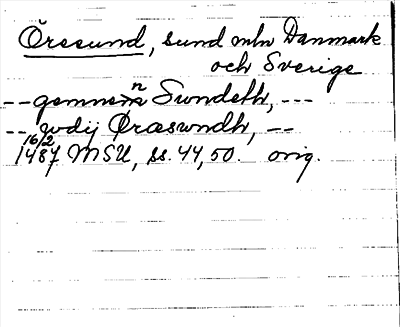 Öresund, sund mln Danmark
och Sverige
-- gemmen Swndeth, ---
-- wdij Øraswndh, --
16/2
1487 MSU, ss. 44, 50. orig.